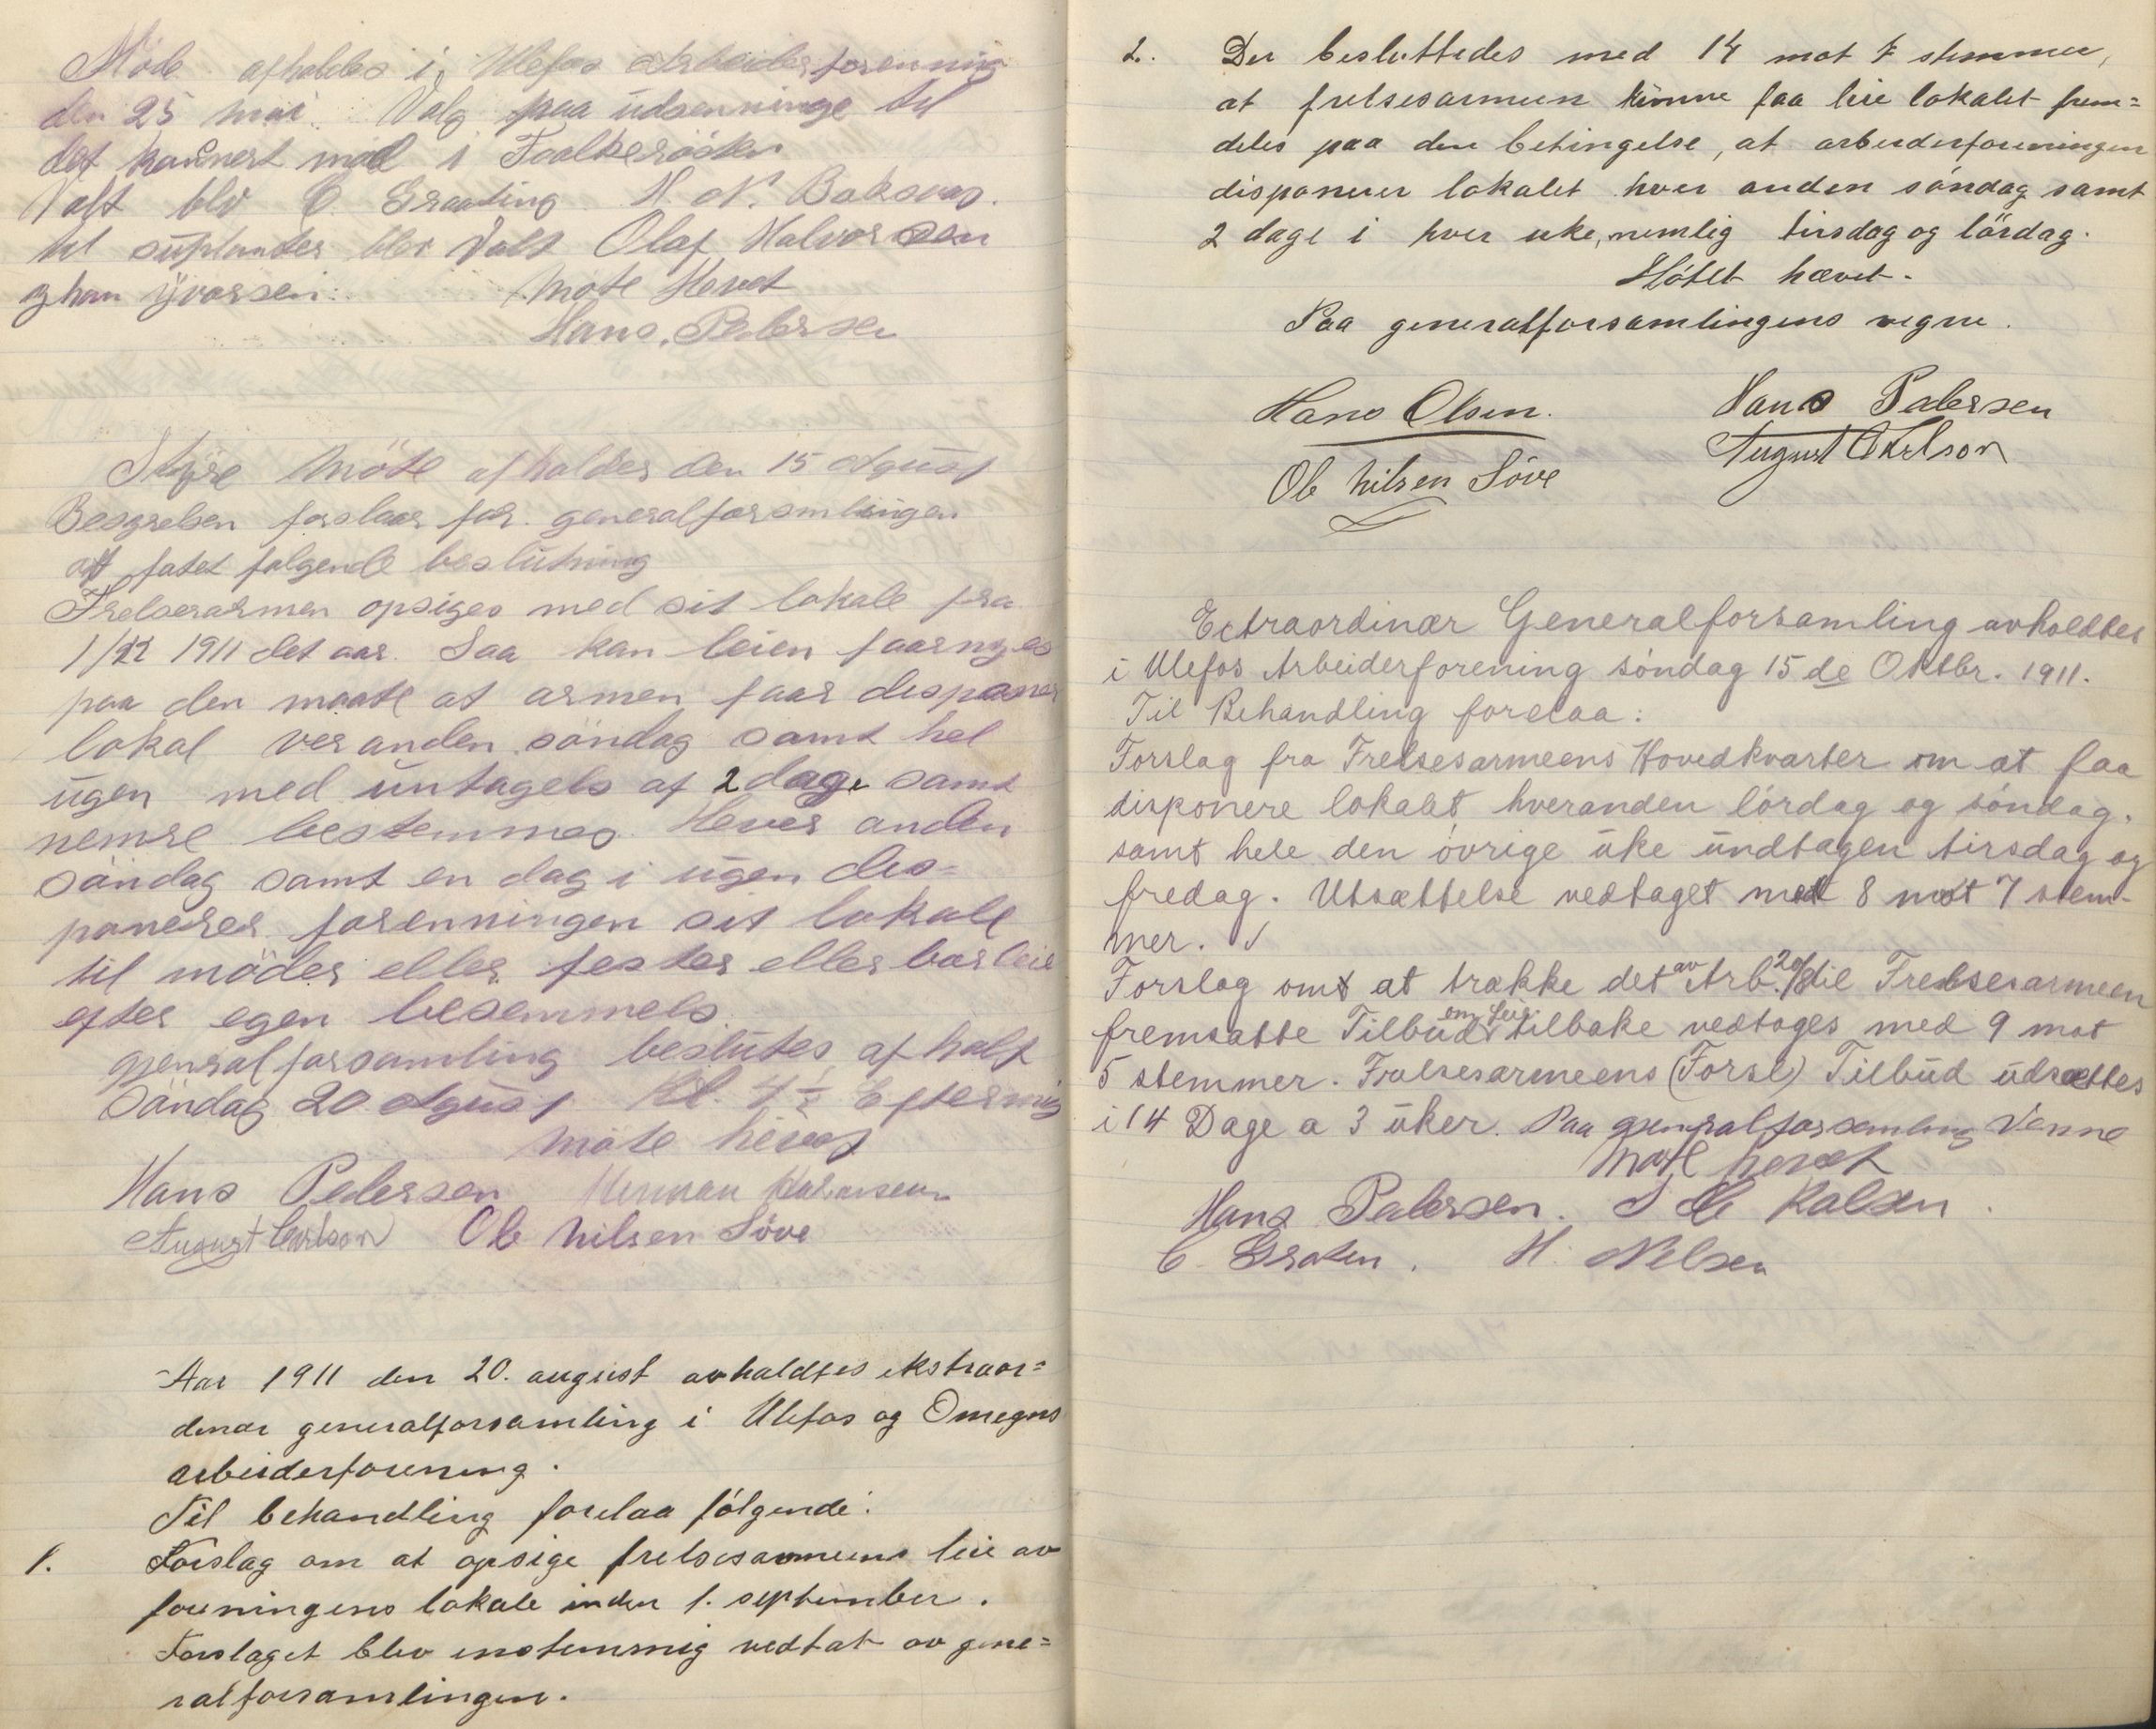 Möde afholdes i Ulefos Arbeiderforenning
den 25 mai. Valg paa udsenninge til
det kommert mød i Foalkesöster
Valt blv C. Graating H. N. Boksaas.
til suplander blev Valt Olaf Halvorssen
og han Yvorsen. Møte Hevet
Hans. Pedersen
Styre möte afholdes den 15 Agust
Besyrelsen forslaar for generalforsmlingen
att fatet folgende beslutning
Frelserarmen opsiges med sit lokale fra
1/12 1911 det aar. Saa kan leien faarnyes
paa den maate at armen faar desponer
lokal ver anden söndag samt hel
ugen med untagels af 2 dage samt
nemre bestemmes. Hever anden
söndag samt en dag i ugen des=
poneres forenningen sit lokale
til möder eller fester eller bortleie
efter egen besemmels
gjenralforsamling beslutes afholt
Söndag 20 Agust Kl. 4½ Eftermig
møte hevet
Hans Pedersen Herman Halvorsen
August Carlson Ole Nilsen Söve
Aar 1911 den 20. august avholdtes ekstraor=
dinær generalforsamling i Ulefos og Omegns
arbeiderforening.
Til behandling forelaa fölgende:
1. Forslag om at opsige frelsesarmeens leie av
foreningens lokale inden 1. september.
Forslaget blev enstemmig vedtat av gene=
ralforsamlingen.
2. Der besluttedes med 14 mot 7 stemmer,
at frelsesarmeen kunne faa leie lokalet frem=
deles paa den betingelse, at arbeiderforeningen
disponerer lokalet hver anden söndag samt
2 dage i hver uke, nemlig tirsdag og lördag.
Mötet hævet.
Paa generalforsamlingens vegne.
Hans Olsen. Hans Pedersen
Ole Nilsen Söve August Karlson
Extraordinær Generalforsamling avholdtes
i Ulefos Arbeiderforening söndag 15de Oktbr. 1911.
Til Behandling forelaa:
Forslag fra Frelsesarmeens Hovedkvarter om at faa
disponere lokalet hveranden lördag og söndag.
samt hele den övrige uke undtagen tirsdag og
fredag. Utsættelse vedtaget med 8 mot 7 stem-
mer. √
Forslag om at trække det av Arb. 20/8 til Frelsesarmeen
fremsatte Tilbud om Leie tilbake vedtoges med 9 mot
5 stemmer. Frelsesarmeens (Forsl) Tilbud udsættes
i 14 Dage a 3 uker. Paa gjenralforsamling Venne
møte hevet
Hans Pedersen. Kalsen.
C. Graten. H. Nelsen